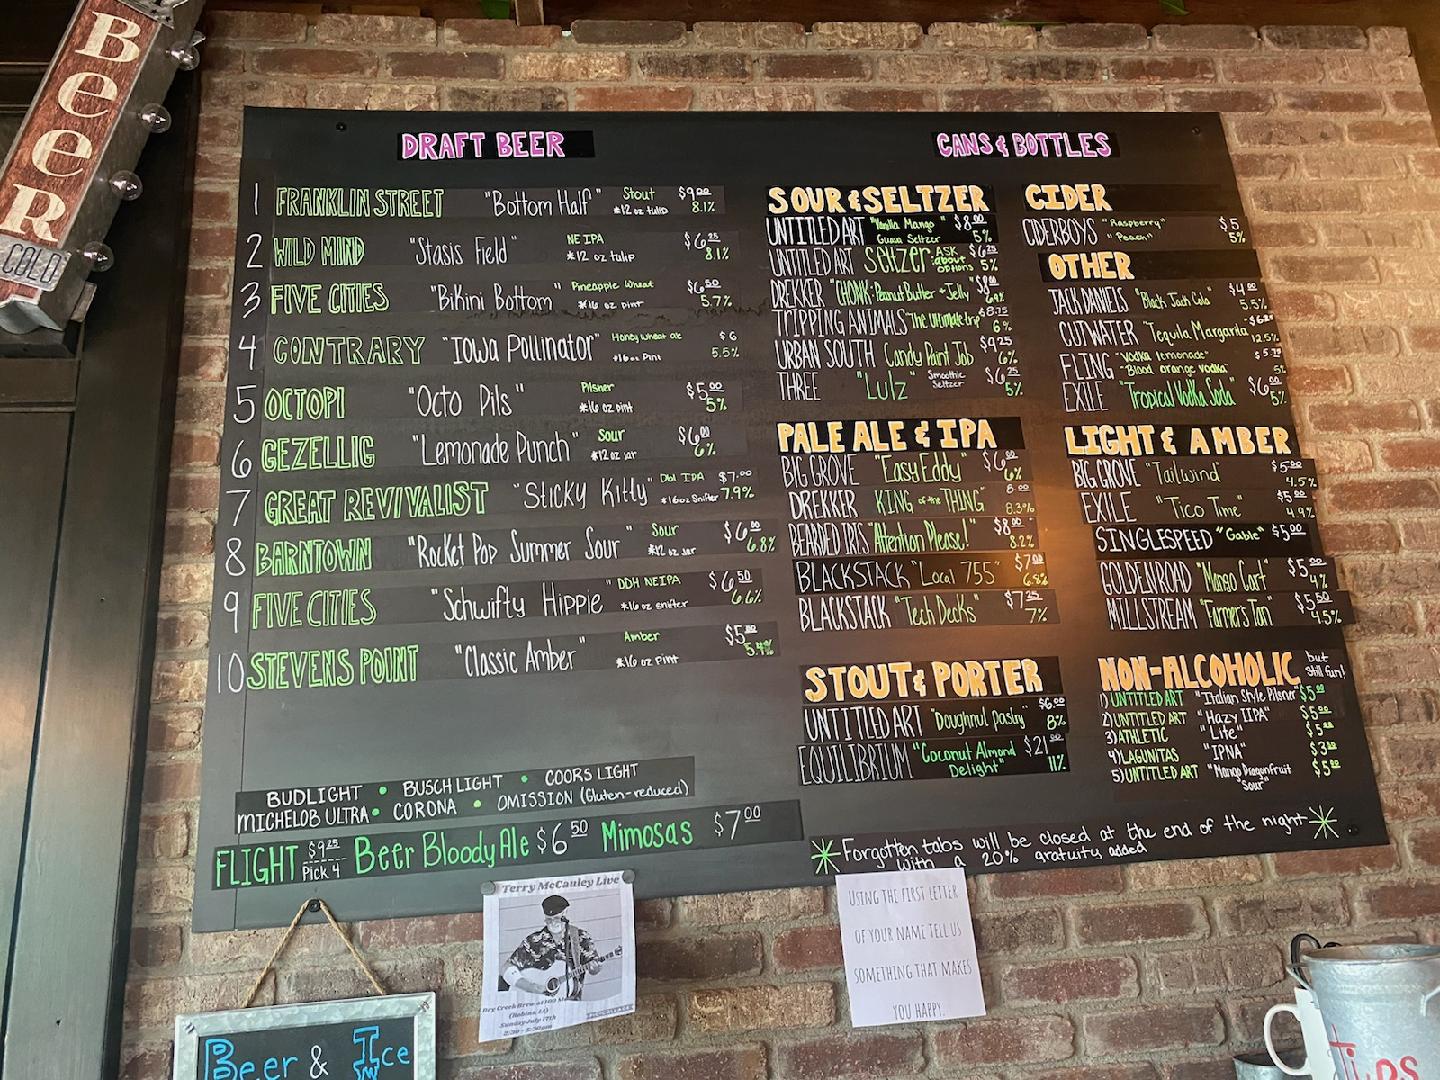 BEER
COLD
DRAFT BEER
1 FRANKLIN STREET "Bottom Half" Stout $9.00
*12 oz tulip 8.1%
2 WILD MIND "Stasis Field" NE IPA $6.25
*12 oz tulip 8.1%
3 FIVE CITIES "Bikini Bottom" Pineapple Wheat $6.50
*16 oz pint 5.7%
4 CONTRARY "Iowa Pollinator" Honey wheat ale $6
*16 oz Pint 5.5%
5 OCTOPI "Octo Pils" Pilsner $5.00
*16 oz pint 5%
6 GEZELLIG "Lemonade Punch" Sour $6.00
*12 oz jar 6%
7 GREAT REVIVALIST "Sticky Kitty" Dbl IPA $7.00
*16 oz Snifter 7.9%
8 BARNTOWN "Rocket Pop Summer Sour" Sour $6.00
*12 oz jar 6.8%
9 FIVE CITIES "Schwifty Hippie" DDH NEIPA $6.50
*16 oz snifter 6.6%
10 STEVENS POINT "Classic Amber" Amber $5.00
*16 oz Pint 5.4%
BUDLIGHT • BUSCH LIGHT • COORS LIGHT
MICHELOB ULTRA • CORONA • OMISSION (Gluten-reduced)
FLIGHT $9.25 Pick 4 Beer Bloody Ale $6.50 Mimosas $7.00
CANS & BOTTLES
SOUR & SELTZER
UNTITLED ART "Vanilla Mango $8.00
Guava Seltzer" 5%
UNTITLED ART Seltzer: ASK about options $6.25 5%
DREKKER "CHONK: Peanut Butter + Jelly"
TRIPPING ANIMALS "The Ultimate trip" $8.75 6%
URBAN SOUTH Candy Paint Job $9.25 6%
THREE "Lulz" Smoothie Seltzer $6.25 5%
PALE ALE & IPA
BIG GROVE "Easy Eddy" $6.00 6%
DREKKER KING of the THING" 8.00 8.3%
BEARDED IRIS "Attention Please!" $8.00 8.2%
BLACKSTACK "Local 755" $7.00 6.8%
BLACKSTACK "Tech Decks" $7.25 7%
STOUT & PORTER
UNTITLED ART "Doughnut pastry" $6.00 8%
EQUILIBRIUM "Coconut Almond Delight" $21.00 11%
CIDER
CIDERBOYS "Raspberry" $5
"Peach" 5%
OTHER
JACK DANIELS "Black Jack Cola" $4.00 5.5%
CUTWATER "Tequila Margarita 12.5%
FLING "Vodka lemonade"
"Blood orange vodka"
EXILE "Tropical Vodka Soda" $6.00 5%
LIGHT & AMBER
BIG GROVE "Tailwind" $5.00 4.5%
EXILE "Tico Time" $5.00 4.9%
SINGLESPEED "Gable" $5.00
GOLDEN ROAD "Mango Cart" $5.00 4%
MILLSTREAM "Farmer's Tan" $5.50 4.5%
NON-ALCOHOLIC but still fun!
1) UNTITLED ART "Italian Style Pilsner" $5.00
2) UNTITLED ART "Hazy IIPA" $5.00
3) ATHLETIC "Lite" $5.00
4) LAGUNITAS "IPNA" $3.00
5) UNTITLED ART "Mango Dragonfruit Sour" $5.00
*Forgotten tabs will be closed at the end of the night*
with a 20% gratuity added
Terry McCauley Live
Sunday July 17th
USING THE FIRST LETTER
OF YOUR NAME TELL US
SOMETHING THAT MAKES
YOU HAPPY.
Beer & Ice
Tips